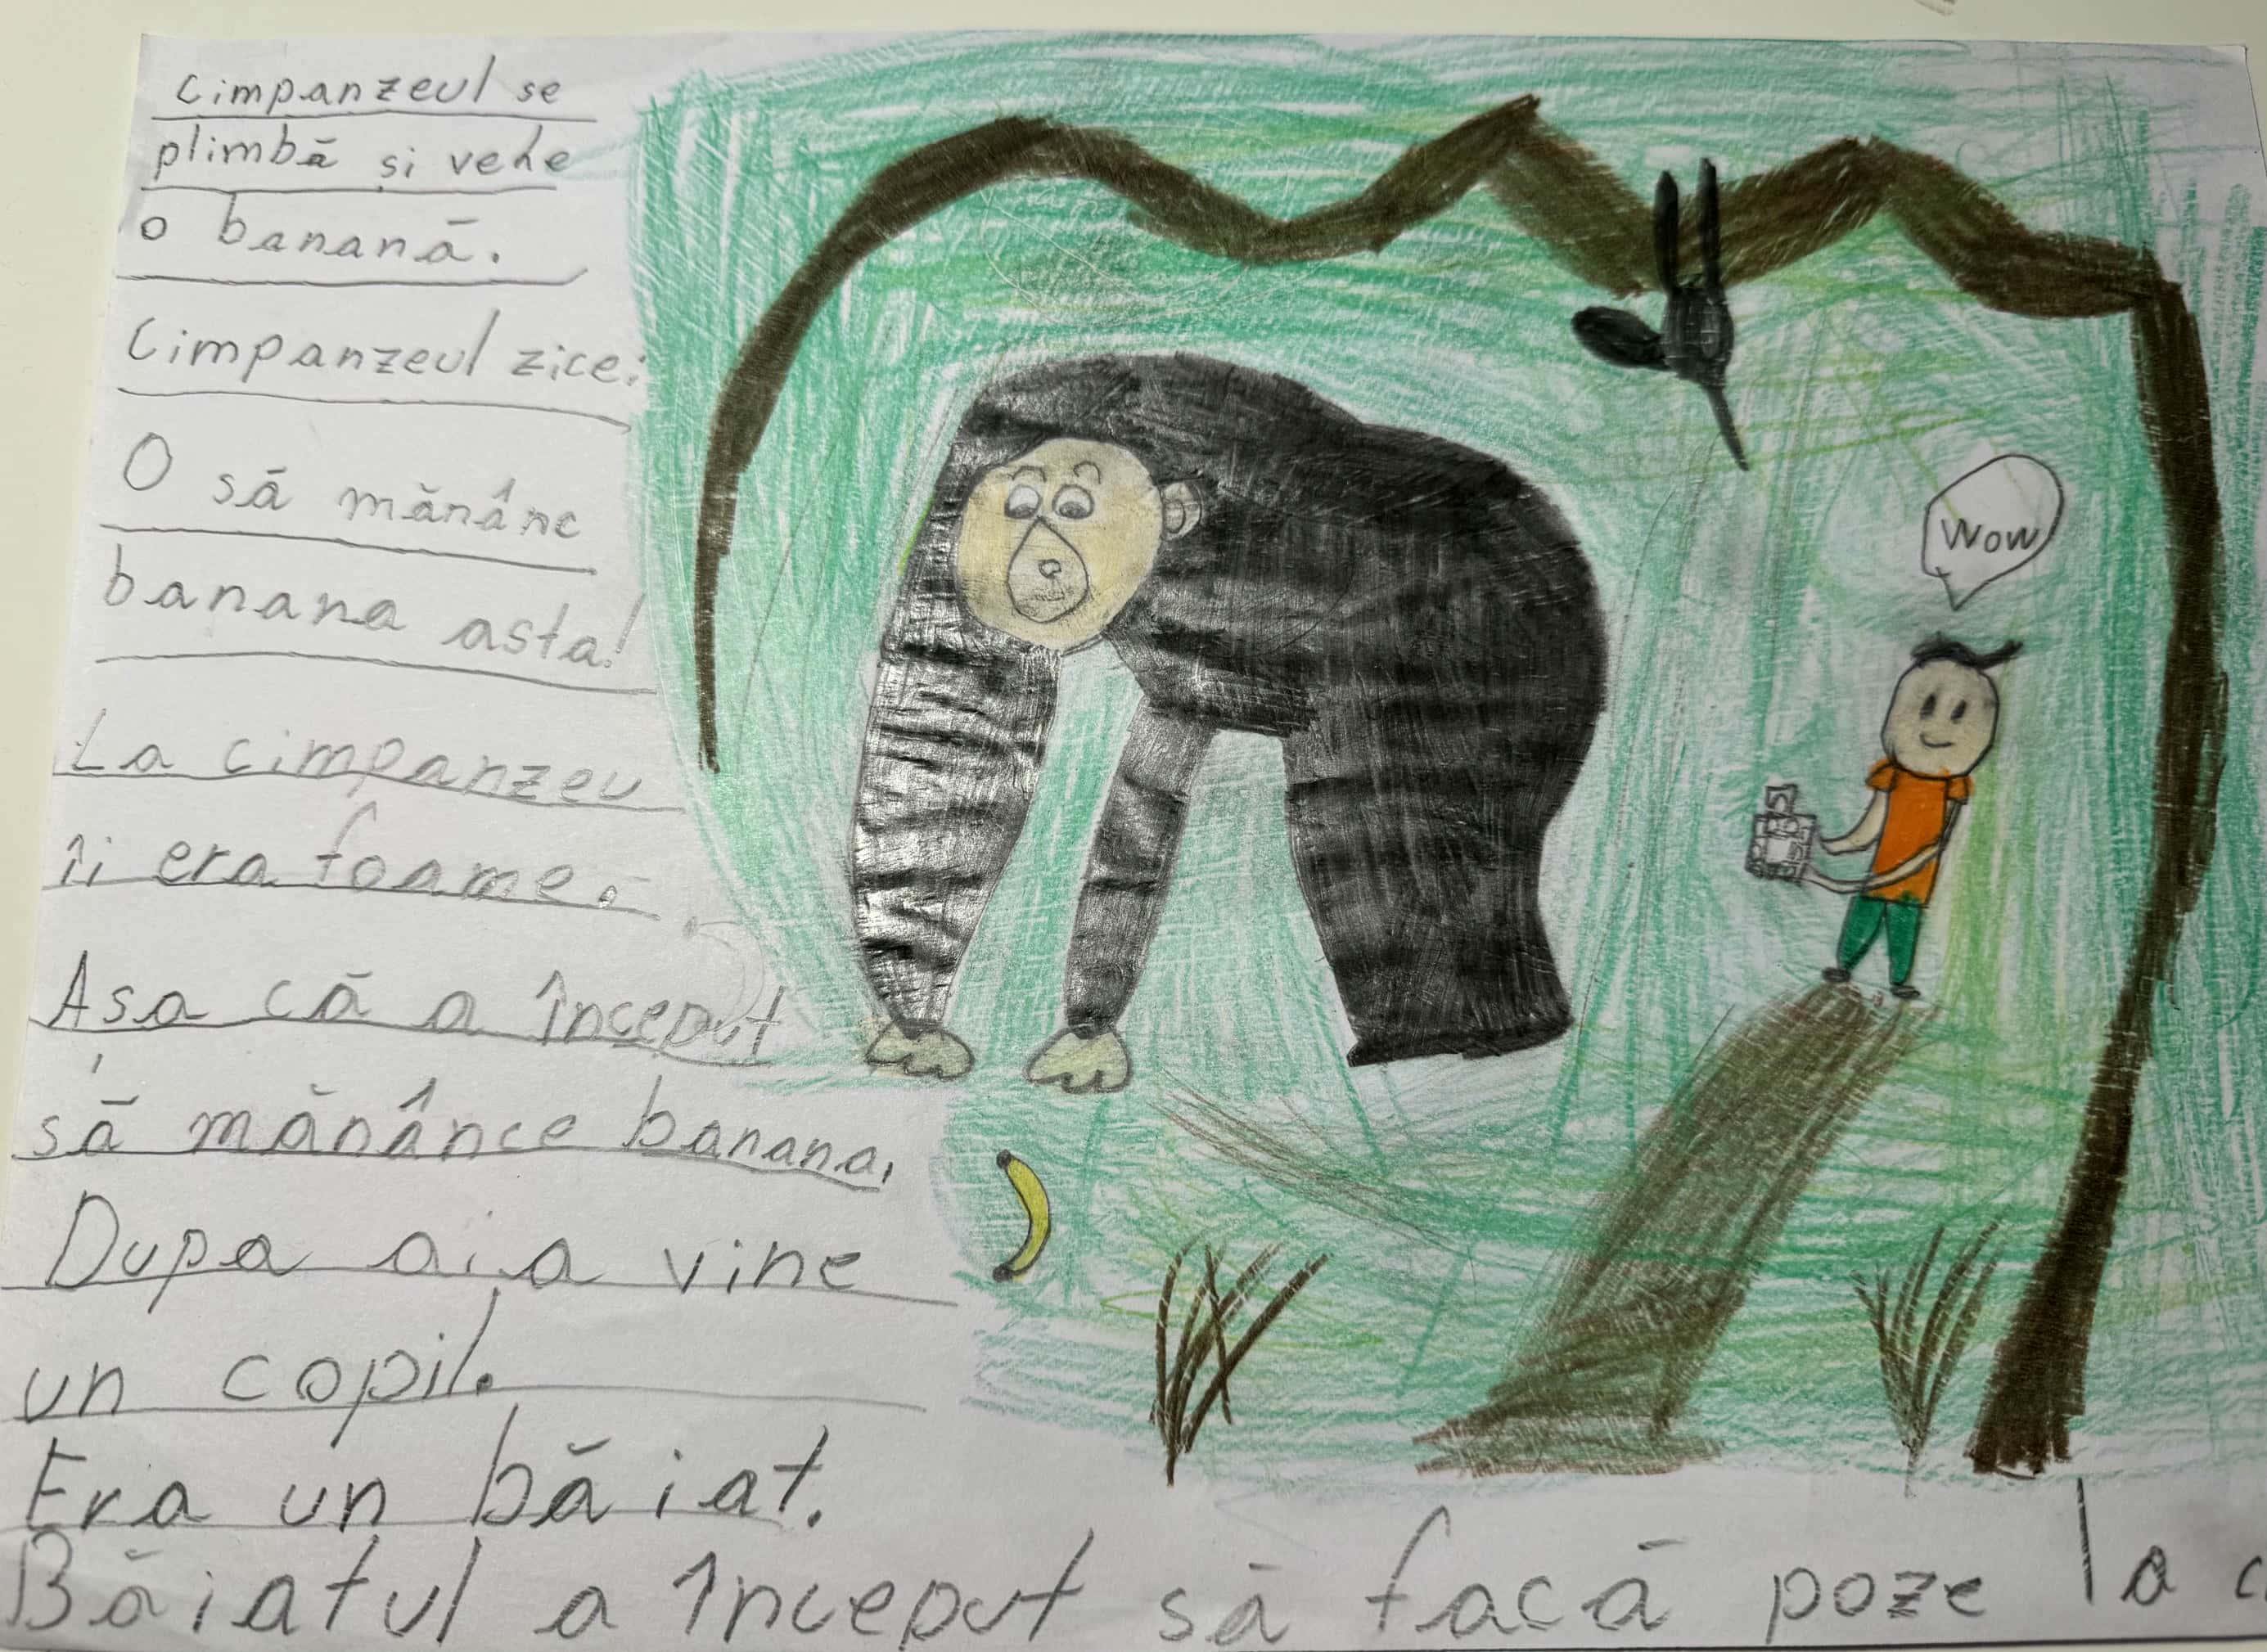 Cimpanzeul se
plimbă și vede
o banană.
Cimpanzeul zice:
O să mănânc
banana asta!
La cimpanzeu
îi era foame.
Asa că a început
să mănânce banana,
Dupa aia vine
un copil.
Era un băiat.
Băiatul a început să facă poze la
Wow